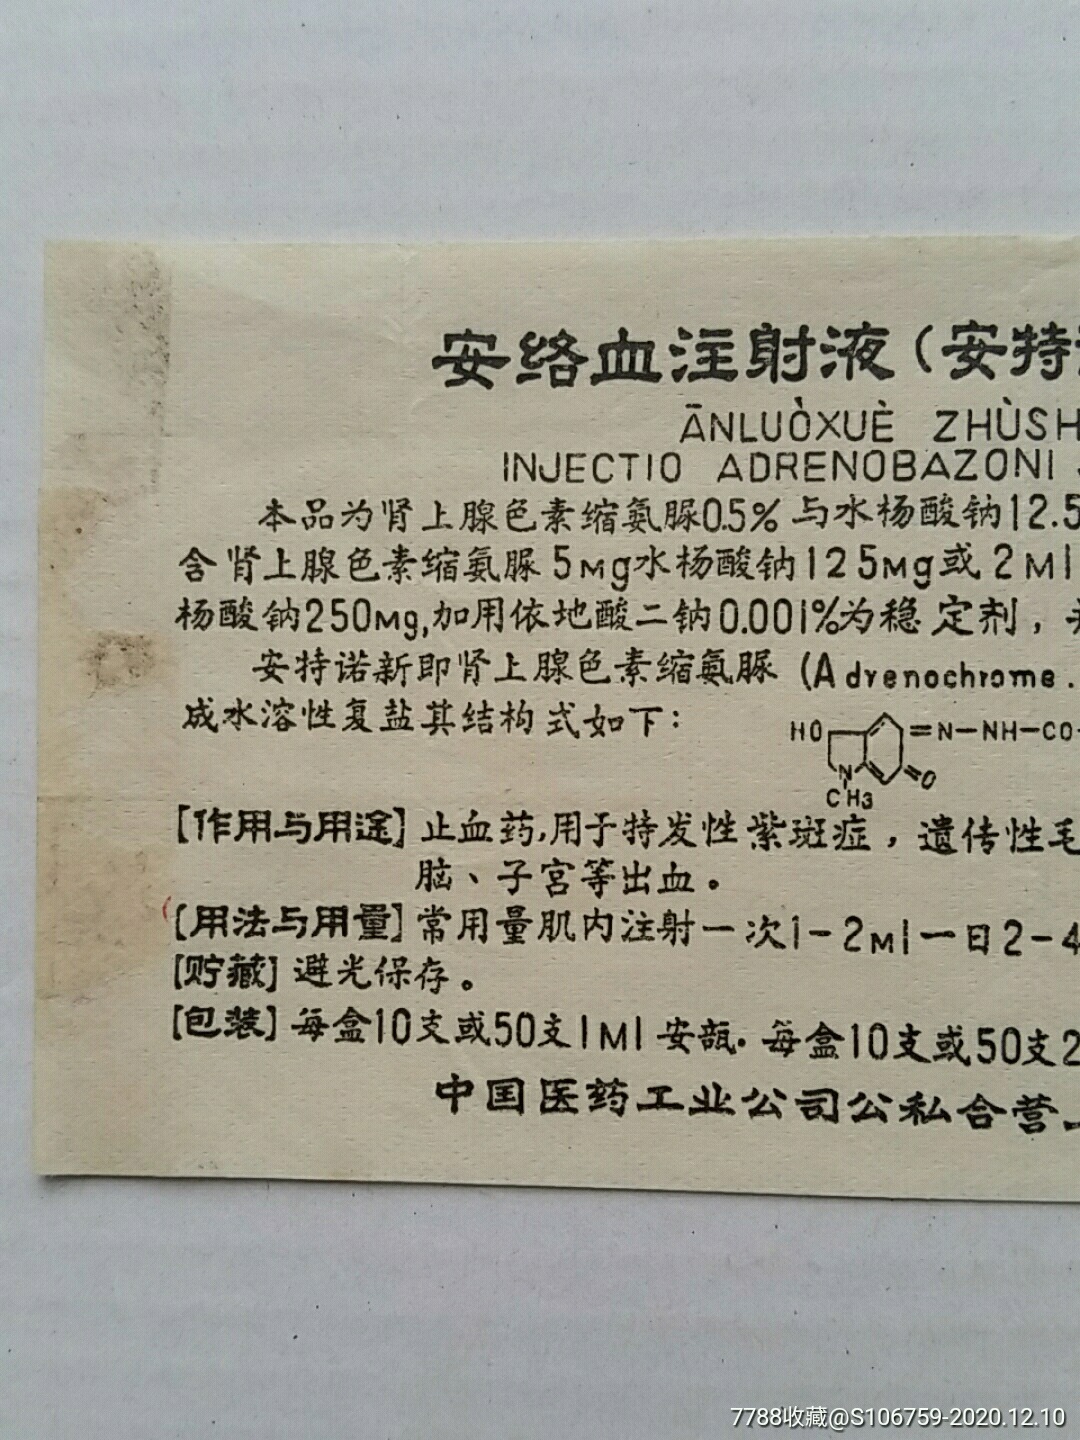 安络血注射液(安特
ĀNLUÒXUÈ ZHÙSH
INJECTIO ADRENOBAZONI
本品为肾上腺色素缩氨脲0.5%与水杨酸钠12.5
含肾上腺色素缩氨脲5mg水杨酸钠125mg或2Ml
杨酸钠250mg,加用依地酸二钠0.001%为稳定剂，
安特诺新即肾上腺色素缩氨脲 (Adrenochrome.
成水溶性复盐其结构式如下：
HO =N—NH—CO-
N O
CH3
[作用与用途] 止血药,用于特发性紫斑症，遗传性毛
脑、子宫等出血。
[用法与用量] 常用量肌内注射一次1-2Ml一日2-4
[贮藏] 避光保存。
[包装] 每盒10支或50支1Ml安瓿.每盒10支或50支2
中国医药工业公司公私合营
7788收藏@S106759-2020.12.10